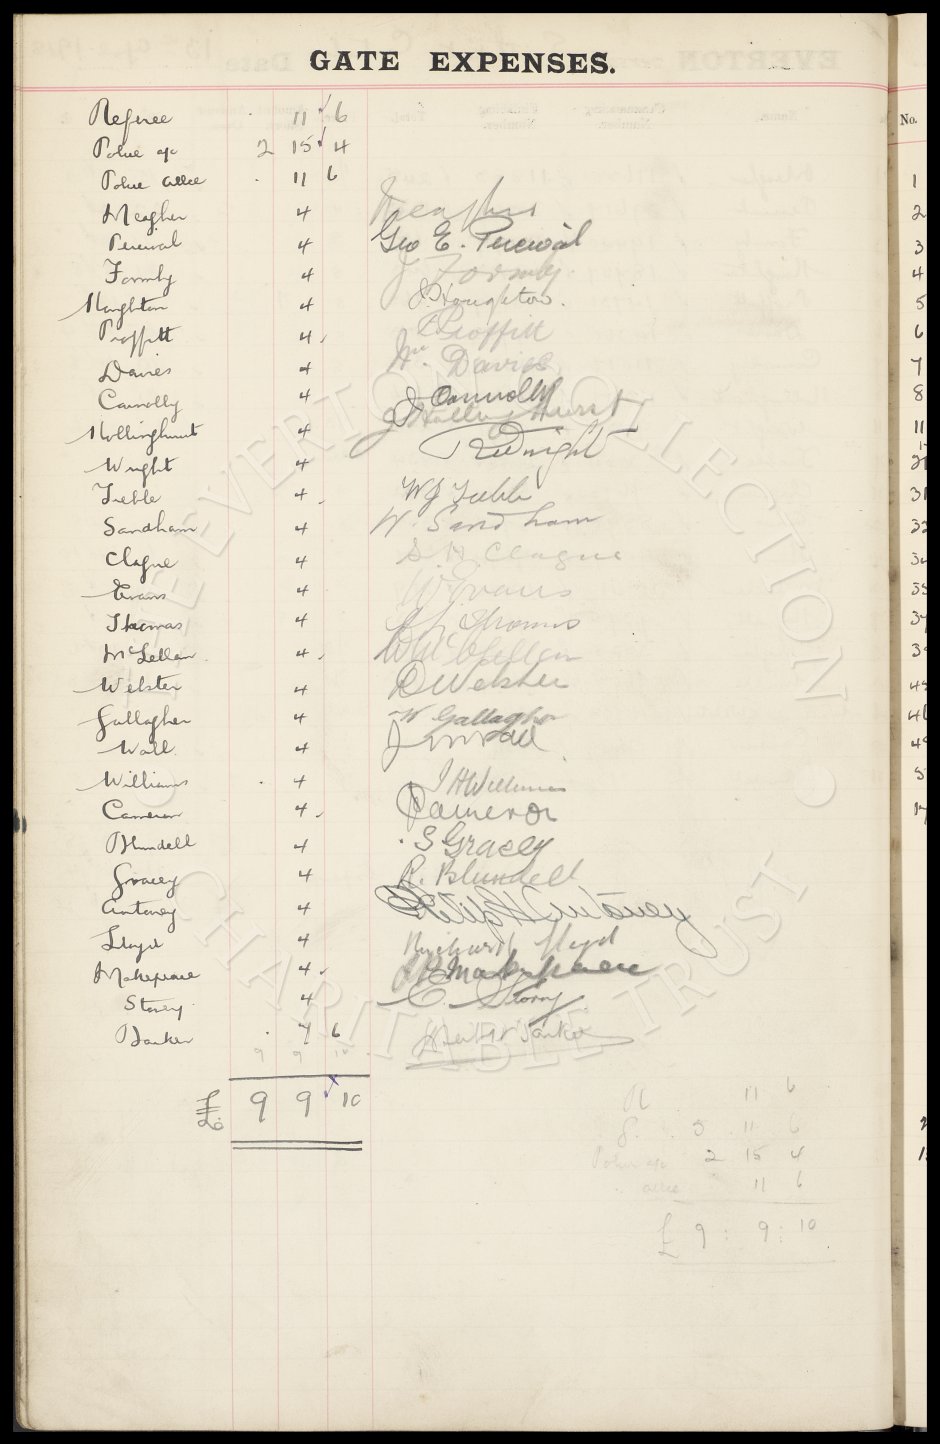 GATE EXPENSES.
Referee 11 6
Police 2 15 4
Police 11 6
Meagher 4 Meagher
Percival 4 Geo E. Percival
Formby 4 J Formby
Houghton 4 J. Houghton.
Proffitt 4 Proffitt
Davies 4 Wm. Davies
Connolly 4 J Connolly
Hollinghurst 4 J Hollinghurst
Wright 4 R Wright
Tebble 4 WJ Tebble
Sandham 4 W. Sandham
Clague 4 S. H. Clague
Evans 4 W Evans
Thomas 4 Thomas
McLellan 4 McClellan
Webster 4 D Webster
Gallagher 4 W Gallagher
Wall 4 J Wall
Williams 4 J H Williams
Cameron 4 Cameron
Blundell 4 S Gracey
Gracey 4 R. Blundell
Anteney 4
Lloyd 4 Richard Lloyd
Makepeace 4 Makepeace
Storey 4 C. Storey
Barker 7 6 Barker
9 9 10
£ 9 9 10
R 11 6
G. 5 11 6
Police 2 15 4
11 6
£ 9 : 9 : 10
No.
1
2
3
4
5
6
7
8
11
THE EVERTON COLLECTION CHARITABLE TRUST